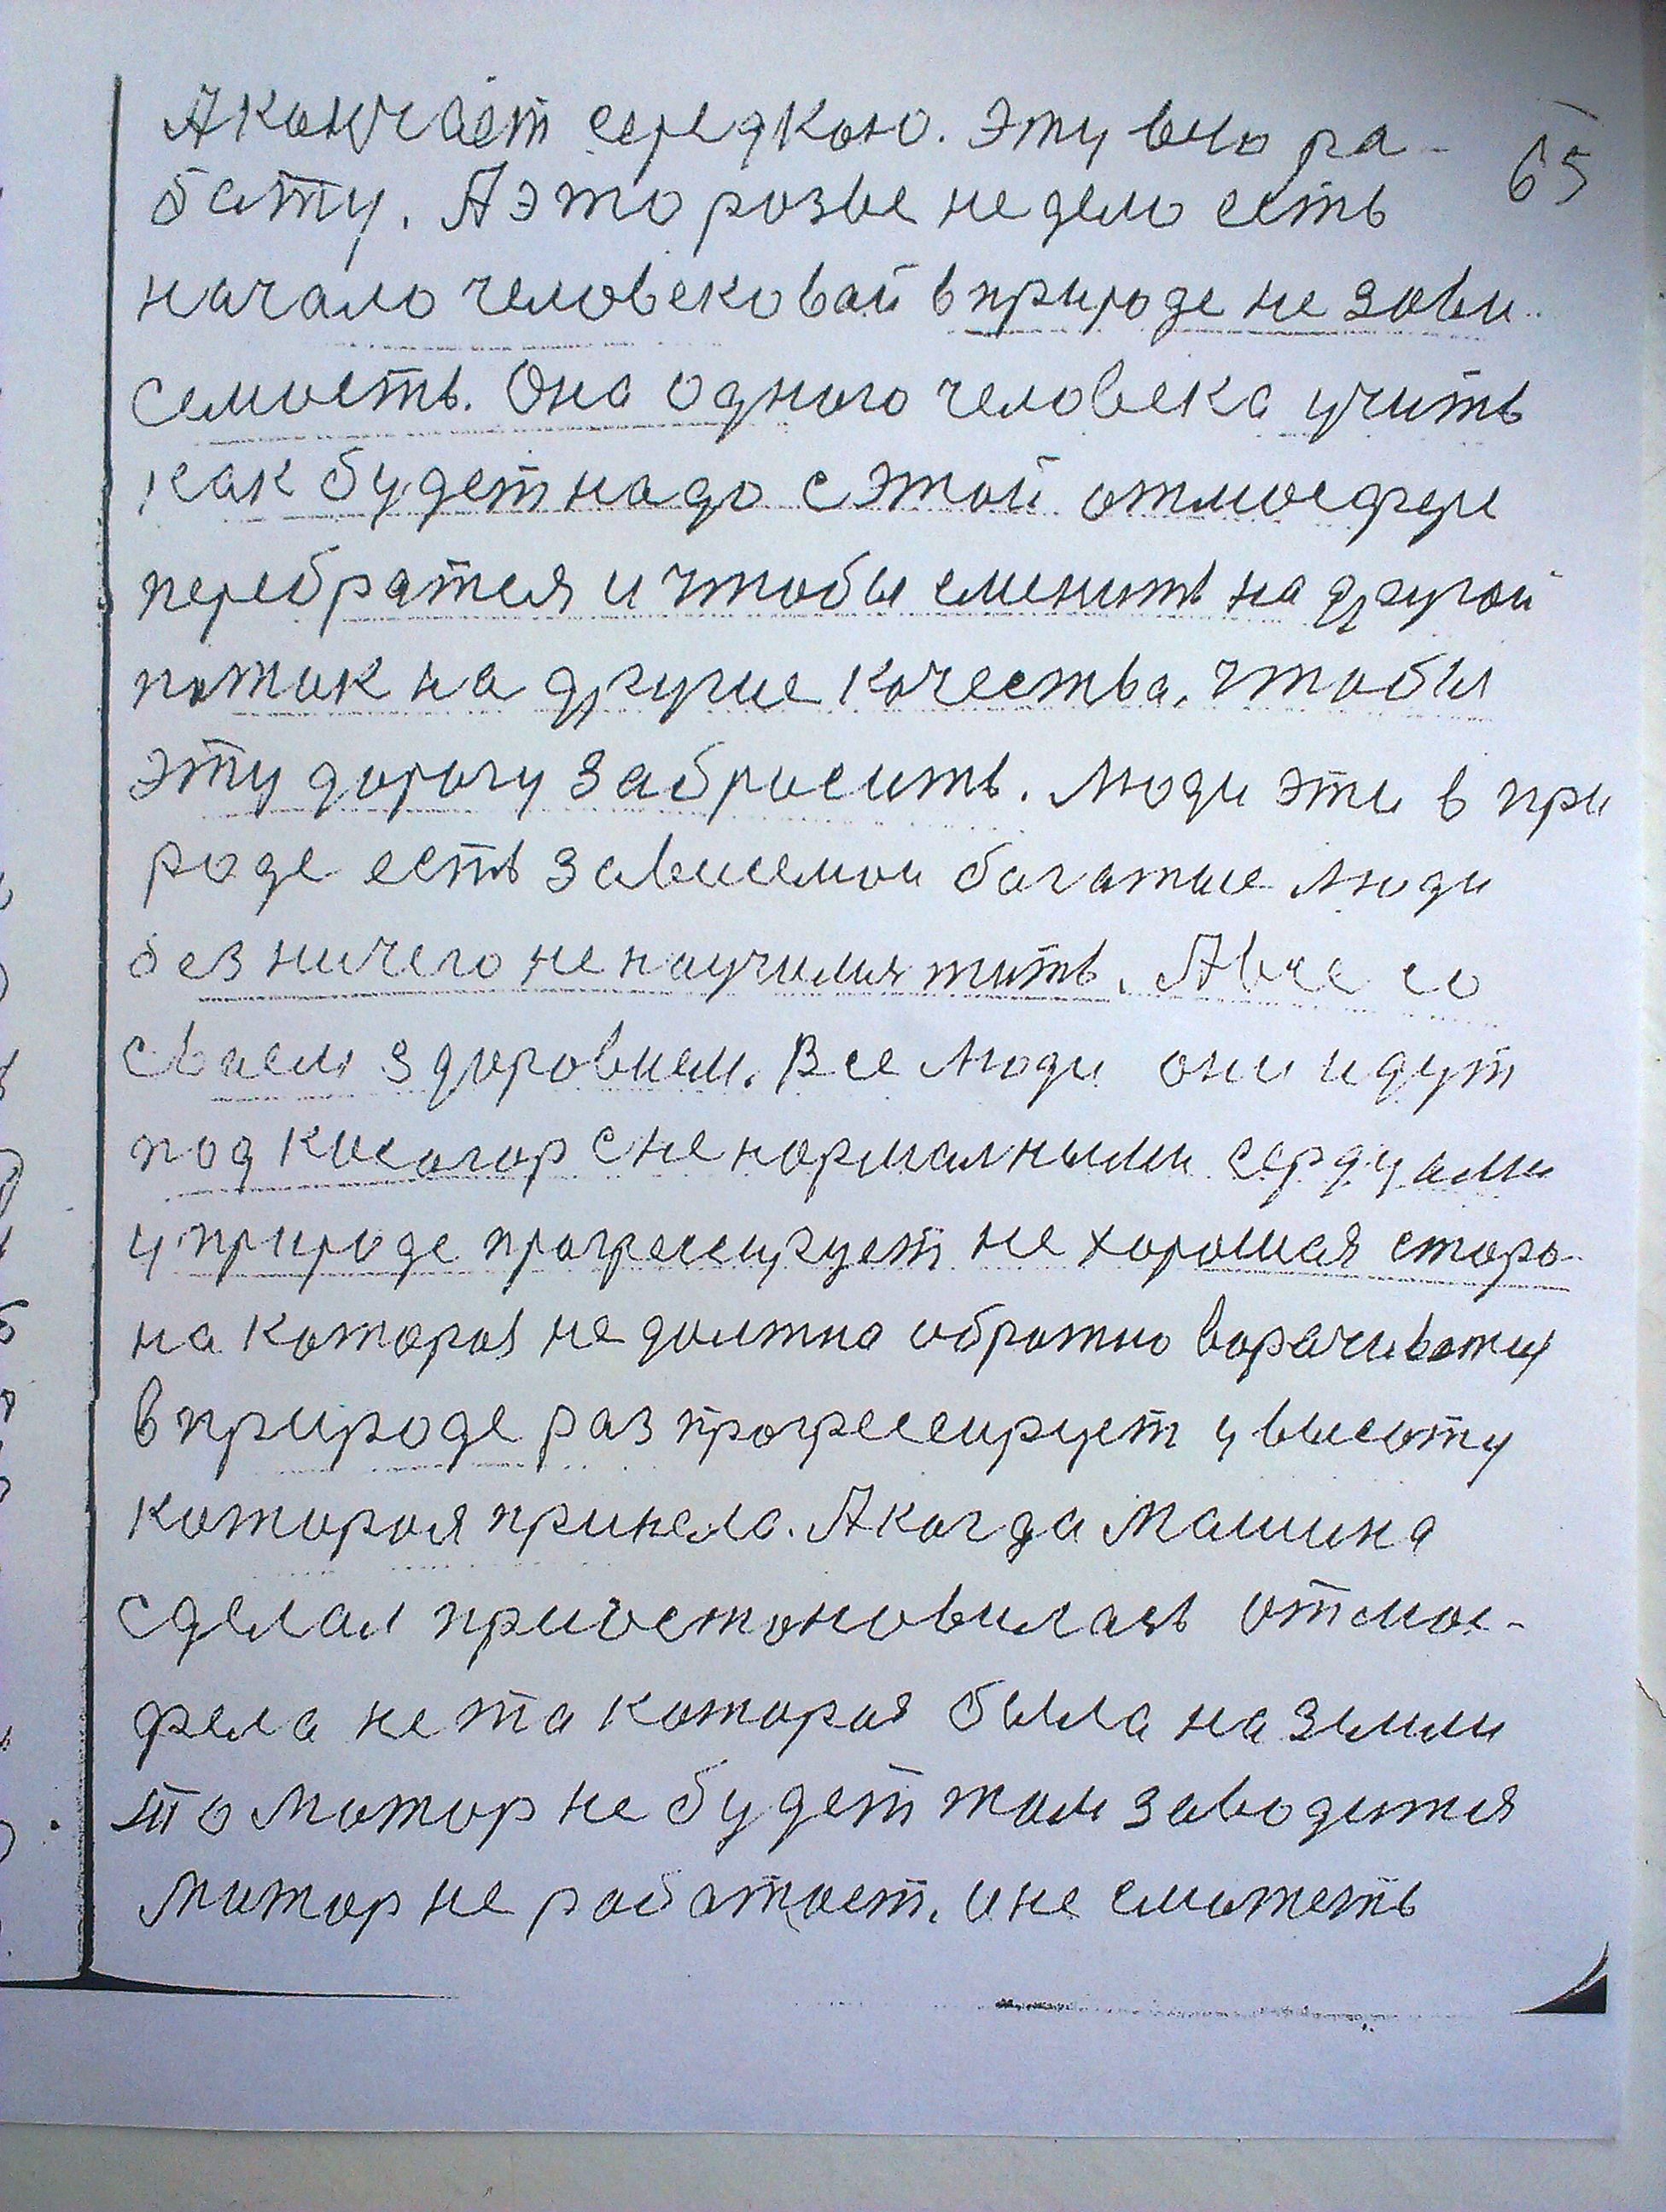 А кончает середкою. Эту всю ра- 65
боту. А это розве не дело есть
начало человековай в природе не зави
семость. Она одного человека учить
как будет надо с этой отмосфере
перебратся и чтобы сменить на другой
поток на другие качества. чтобы
эту дорогу забросить. Люди эти в при
роде есть зависемои богатые люди
без ничего не научился жить. А все со
своем здоровием. Все люди они идут
под косогор с не нормалными сердцами
у природе прогрессирует не хорошая сторо-
на которая не должна обратно
в природе раз прогрессирует у высоту
которая принела. А когда машина
сделал приостоновилась отмос-
фела не та которая была на земли
то мотор не будет там заводится
мотор не работает. и не сможеть